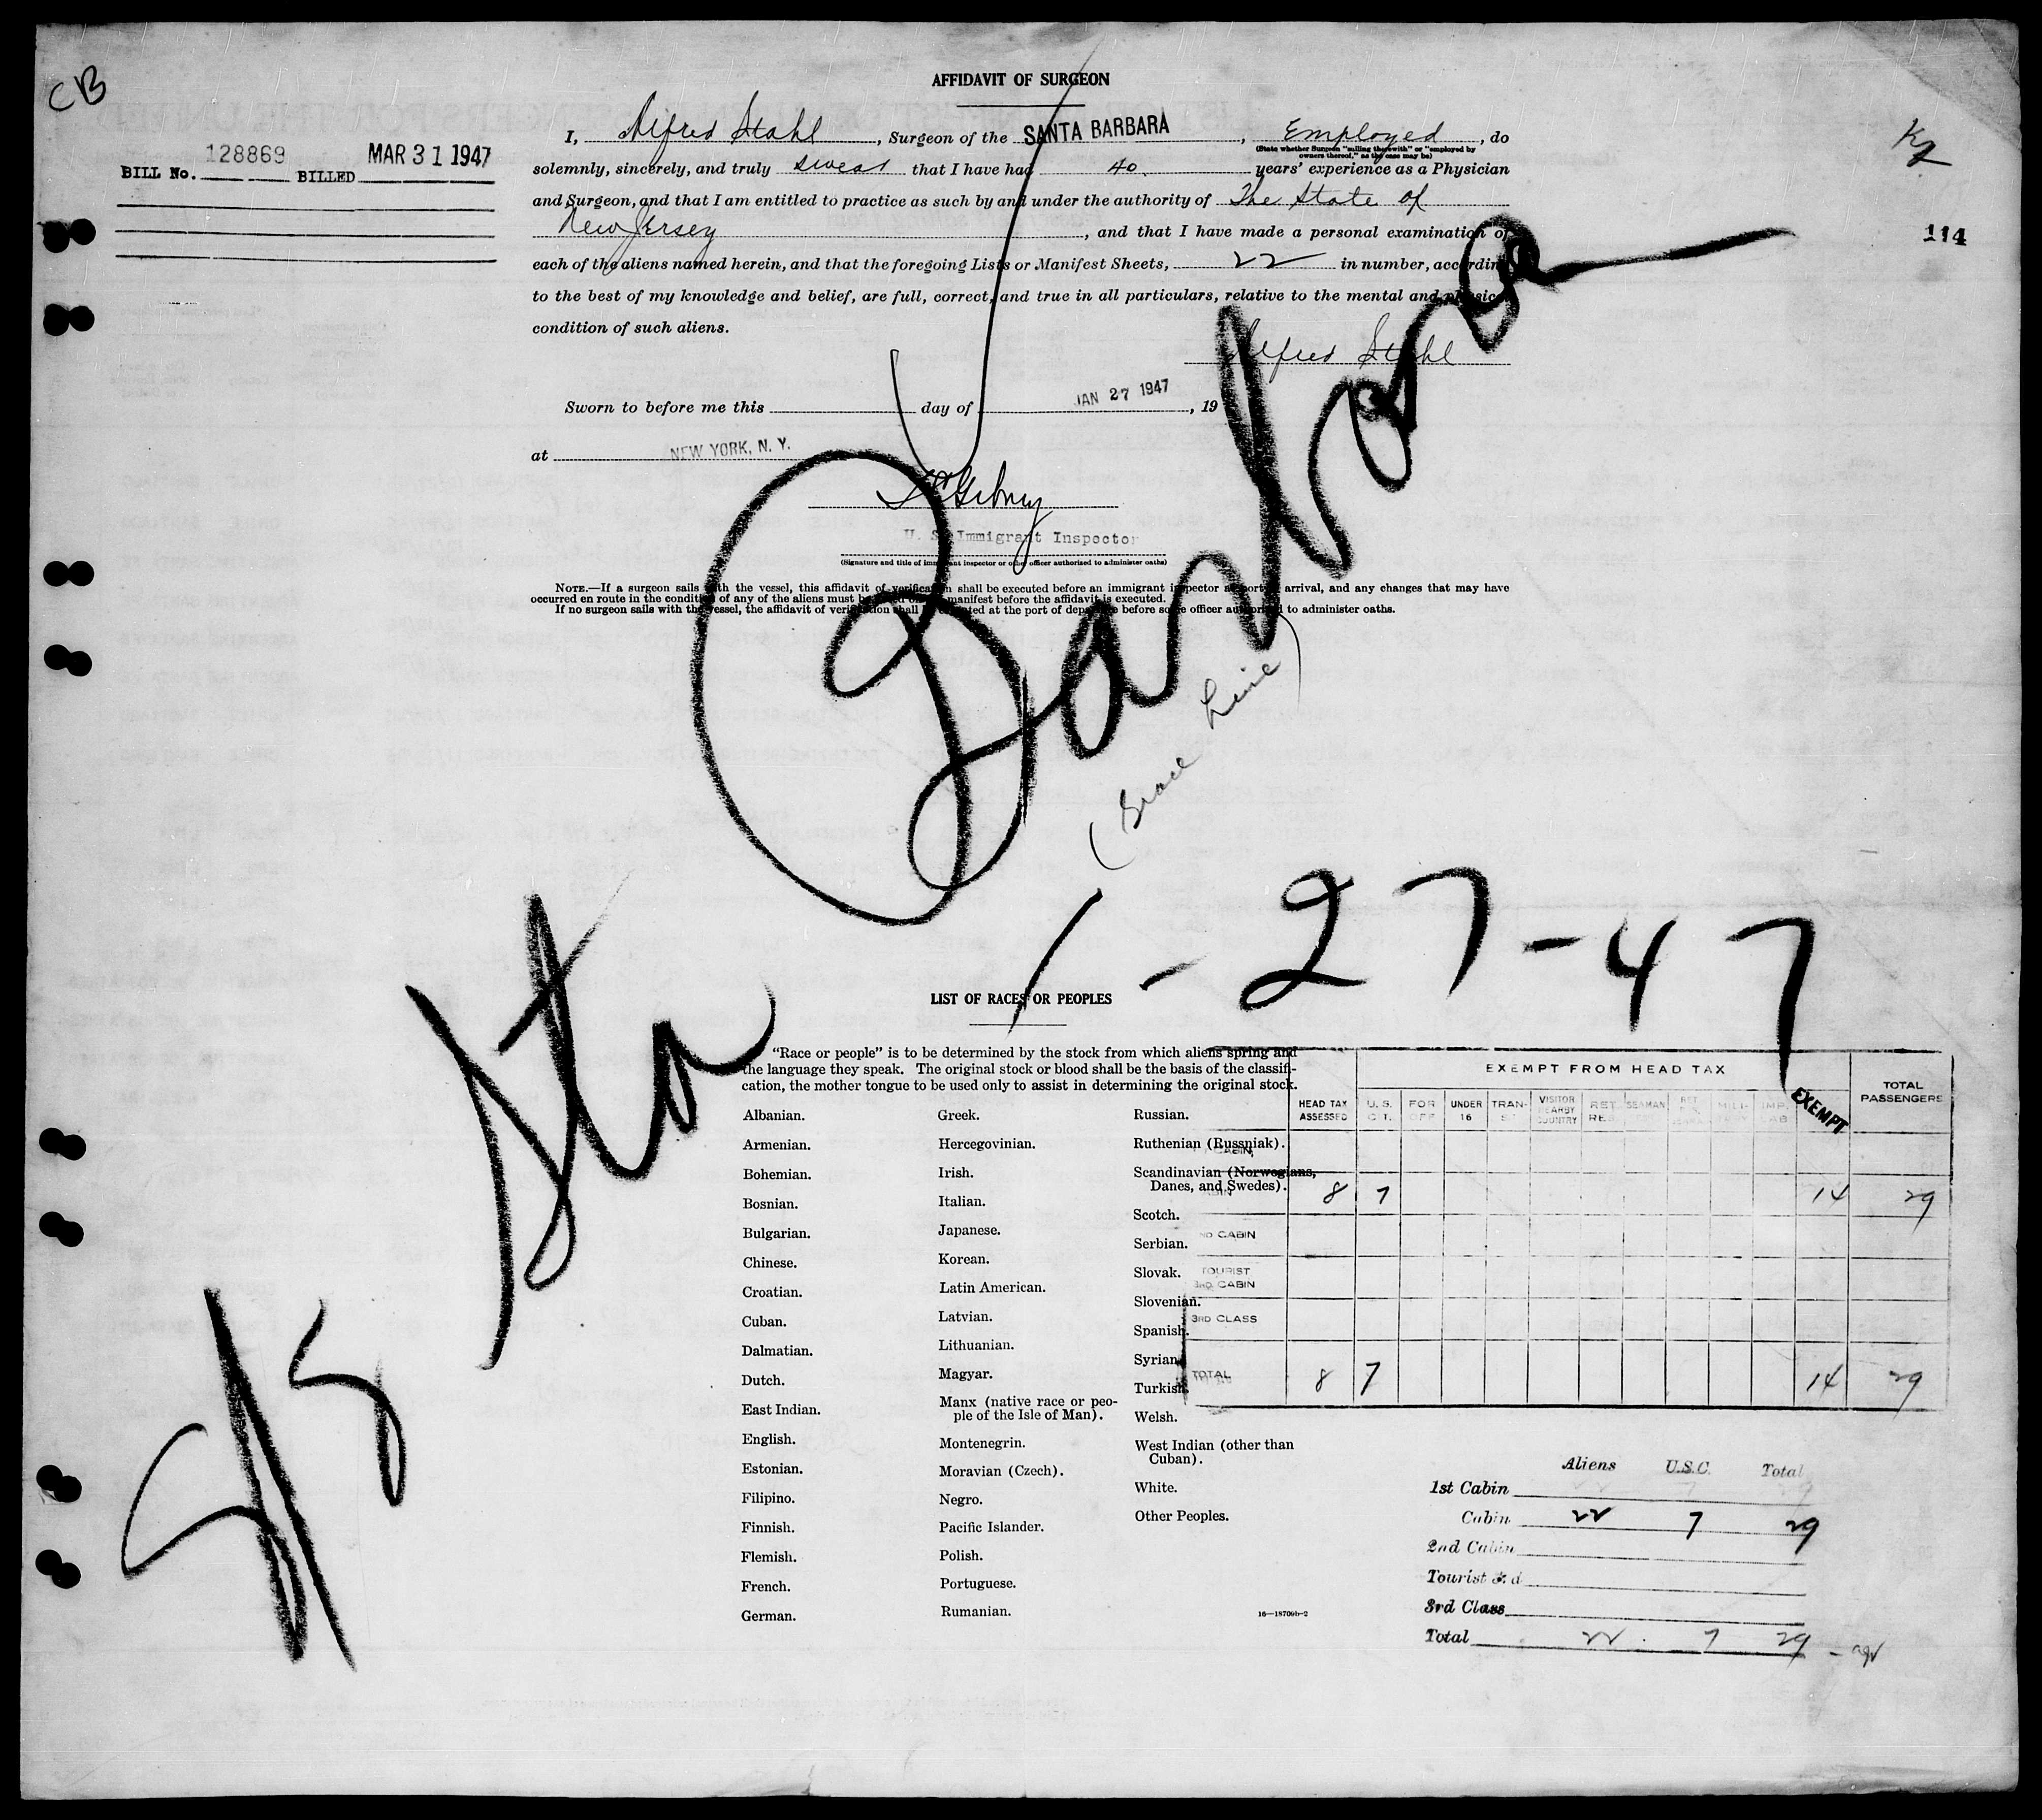 CB
AFFIDAVIT OF SURGEON
I, Alfred Stahl, Surgeon of the SANTA BARBARA, Employed, do
(State whether Surgeon "sailing therewith" or "employed by owners thereof," as the case may be)
solemnly, sincerely, and truly swear that I have had 40 years' experience as a Physician
and Surgeon, and that I am entitled to practice as such by and under the authority of The State of
New Jersey, and that I have made a personal examination of
each of the aliens named herein, and that the foregoing Lists or Manifest Sheets, 22 in number, according
to the best of my knowledge and belief, are full, correct, and true in all particulars, relative to the mental and physical
condition of such aliens.
Alfred Stahl
BILL No. 128869 BILLED MAR 31 1947
114
Sworn to before me this day of JAN 27 1947, 19
at NEW YORK, N. Y.
U. S. Immigrant Inspector
(Signature and title of immigrant inspector or other officer authorized to administer oaths)
NOTE.—If a surgeon sails with the vessel, this affidavit of verification shall be executed before an immigrant inspector at port of arrival, and any changes that may have
occurred en route in the condition of any of the aliens must be noted on the manifest before the affidavit is executed.
If no surgeon sails with the vessel, the affidavit of verification shall be executed at the port of departure before some officer authorized to administer oaths.
S/S Sta Barbara
(Grace Line)
1-27-47
LIST OF RACES OR PEOPLES
"Race or people" is to be determined by the stock from which aliens spring and
the language they speak. The original stock or blood shall be the basis of the classifi-
cation, the mother tongue to be used only to assist in determining the original stock.
Albanian.
Armenian.
Bohemian.
Bosnian.
Bulgarian.
Chinese.
Croatian.
Cuban.
Dalmatian.
Dutch.
East Indian.
English.
Estonian.
Filipino.
Finnish.
Flemish.
French.
German.
Greek.
Hercegovinian.
Irish.
Italian.
Japanese.
Korean.
Latin American.
Latvian.
Lithuanian.
Magyar.
Manx (native race or peo-
ple of the Isle of Man).
Montenegrin.
Moravian (Czech).
Negro.
Pacific Islander.
Polish.
Portuguese.
Rumanian.
Russian.
Ruthenian (Russniak).
Scandinavian (Norwegians,
Danes, and Swedes).
Scotch.
Serbian.
Slovak.
Slovenian.
Spanish.
Syrian.
Turkish.
Welsh.
West Indian (other than
Cuban).
White.
Other Peoples.
16—18709b-2
EXEMPT FROM HEAD TAX
HEAD TAX ASSESSED U. S. CIT. FOR OFF UNDER 16 TRAN-SIT VISITOR NEARBY COUNTRY RET RE. SEAMAN EXEMPT TOTAL PASSENGERS
CABIN
8 7 14 29
2ND CABIN
TOURIST
3RD CABIN
3RD CLASS
TOTAL 8 7 14 29
Aliens U.S.C. Total
1st Cabin
Cabin 22 7 29
2nd Cabin
Tourist 3rd
3rd Class
Total 22 7 29